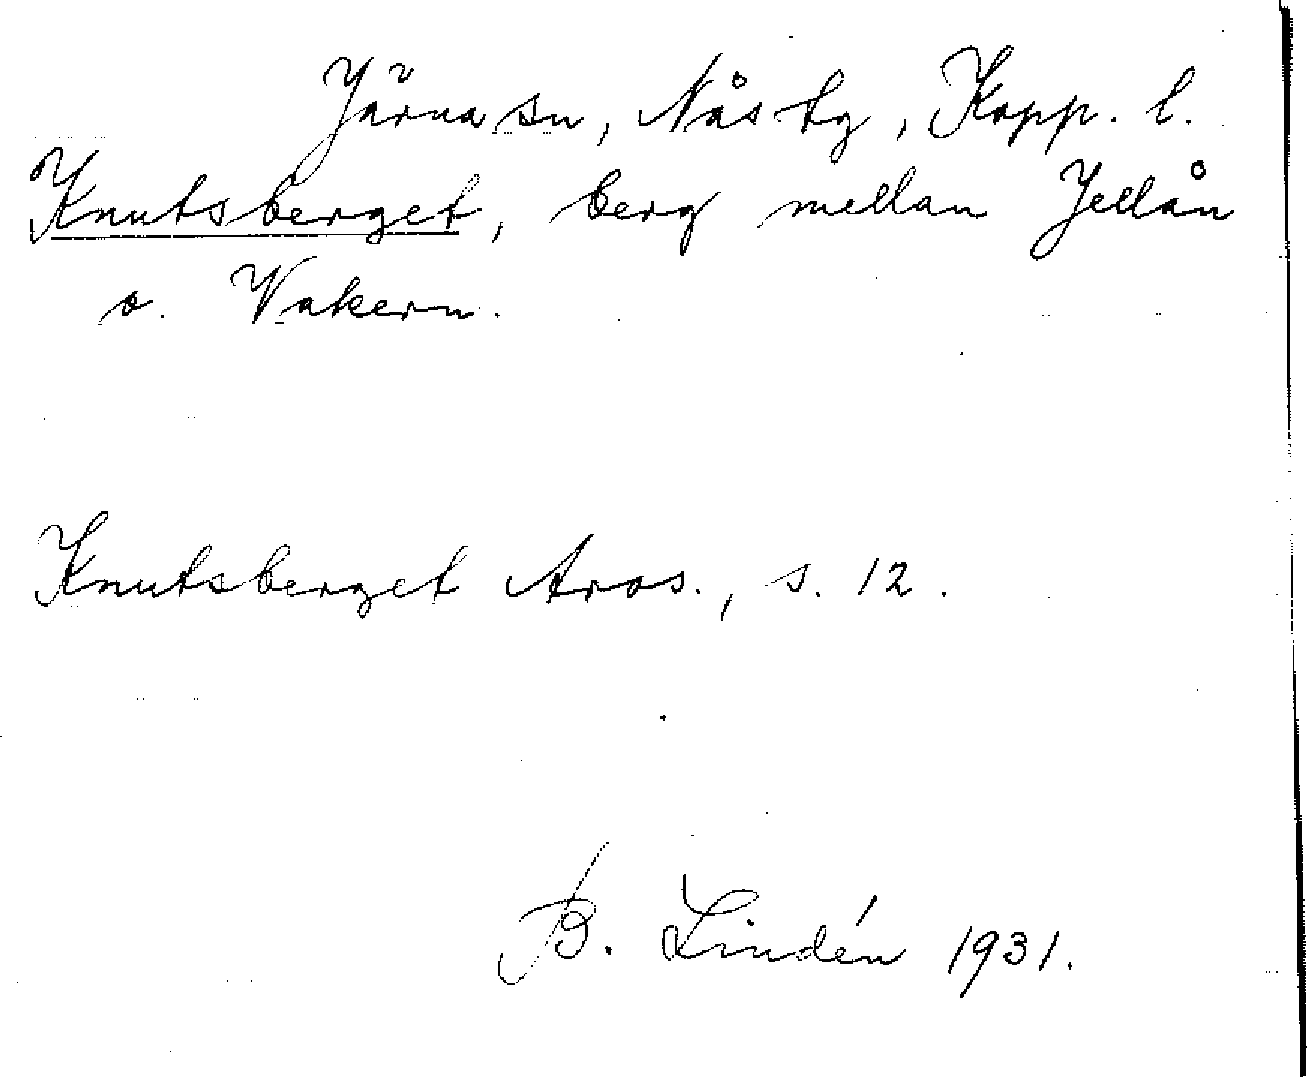 Järna sn, Nås tg, Kopp. l.
Knutsberget, berg mellan Jellån
o. Vakern.
Knutsberget Aros., s. 12.
B. Lindén 1931.